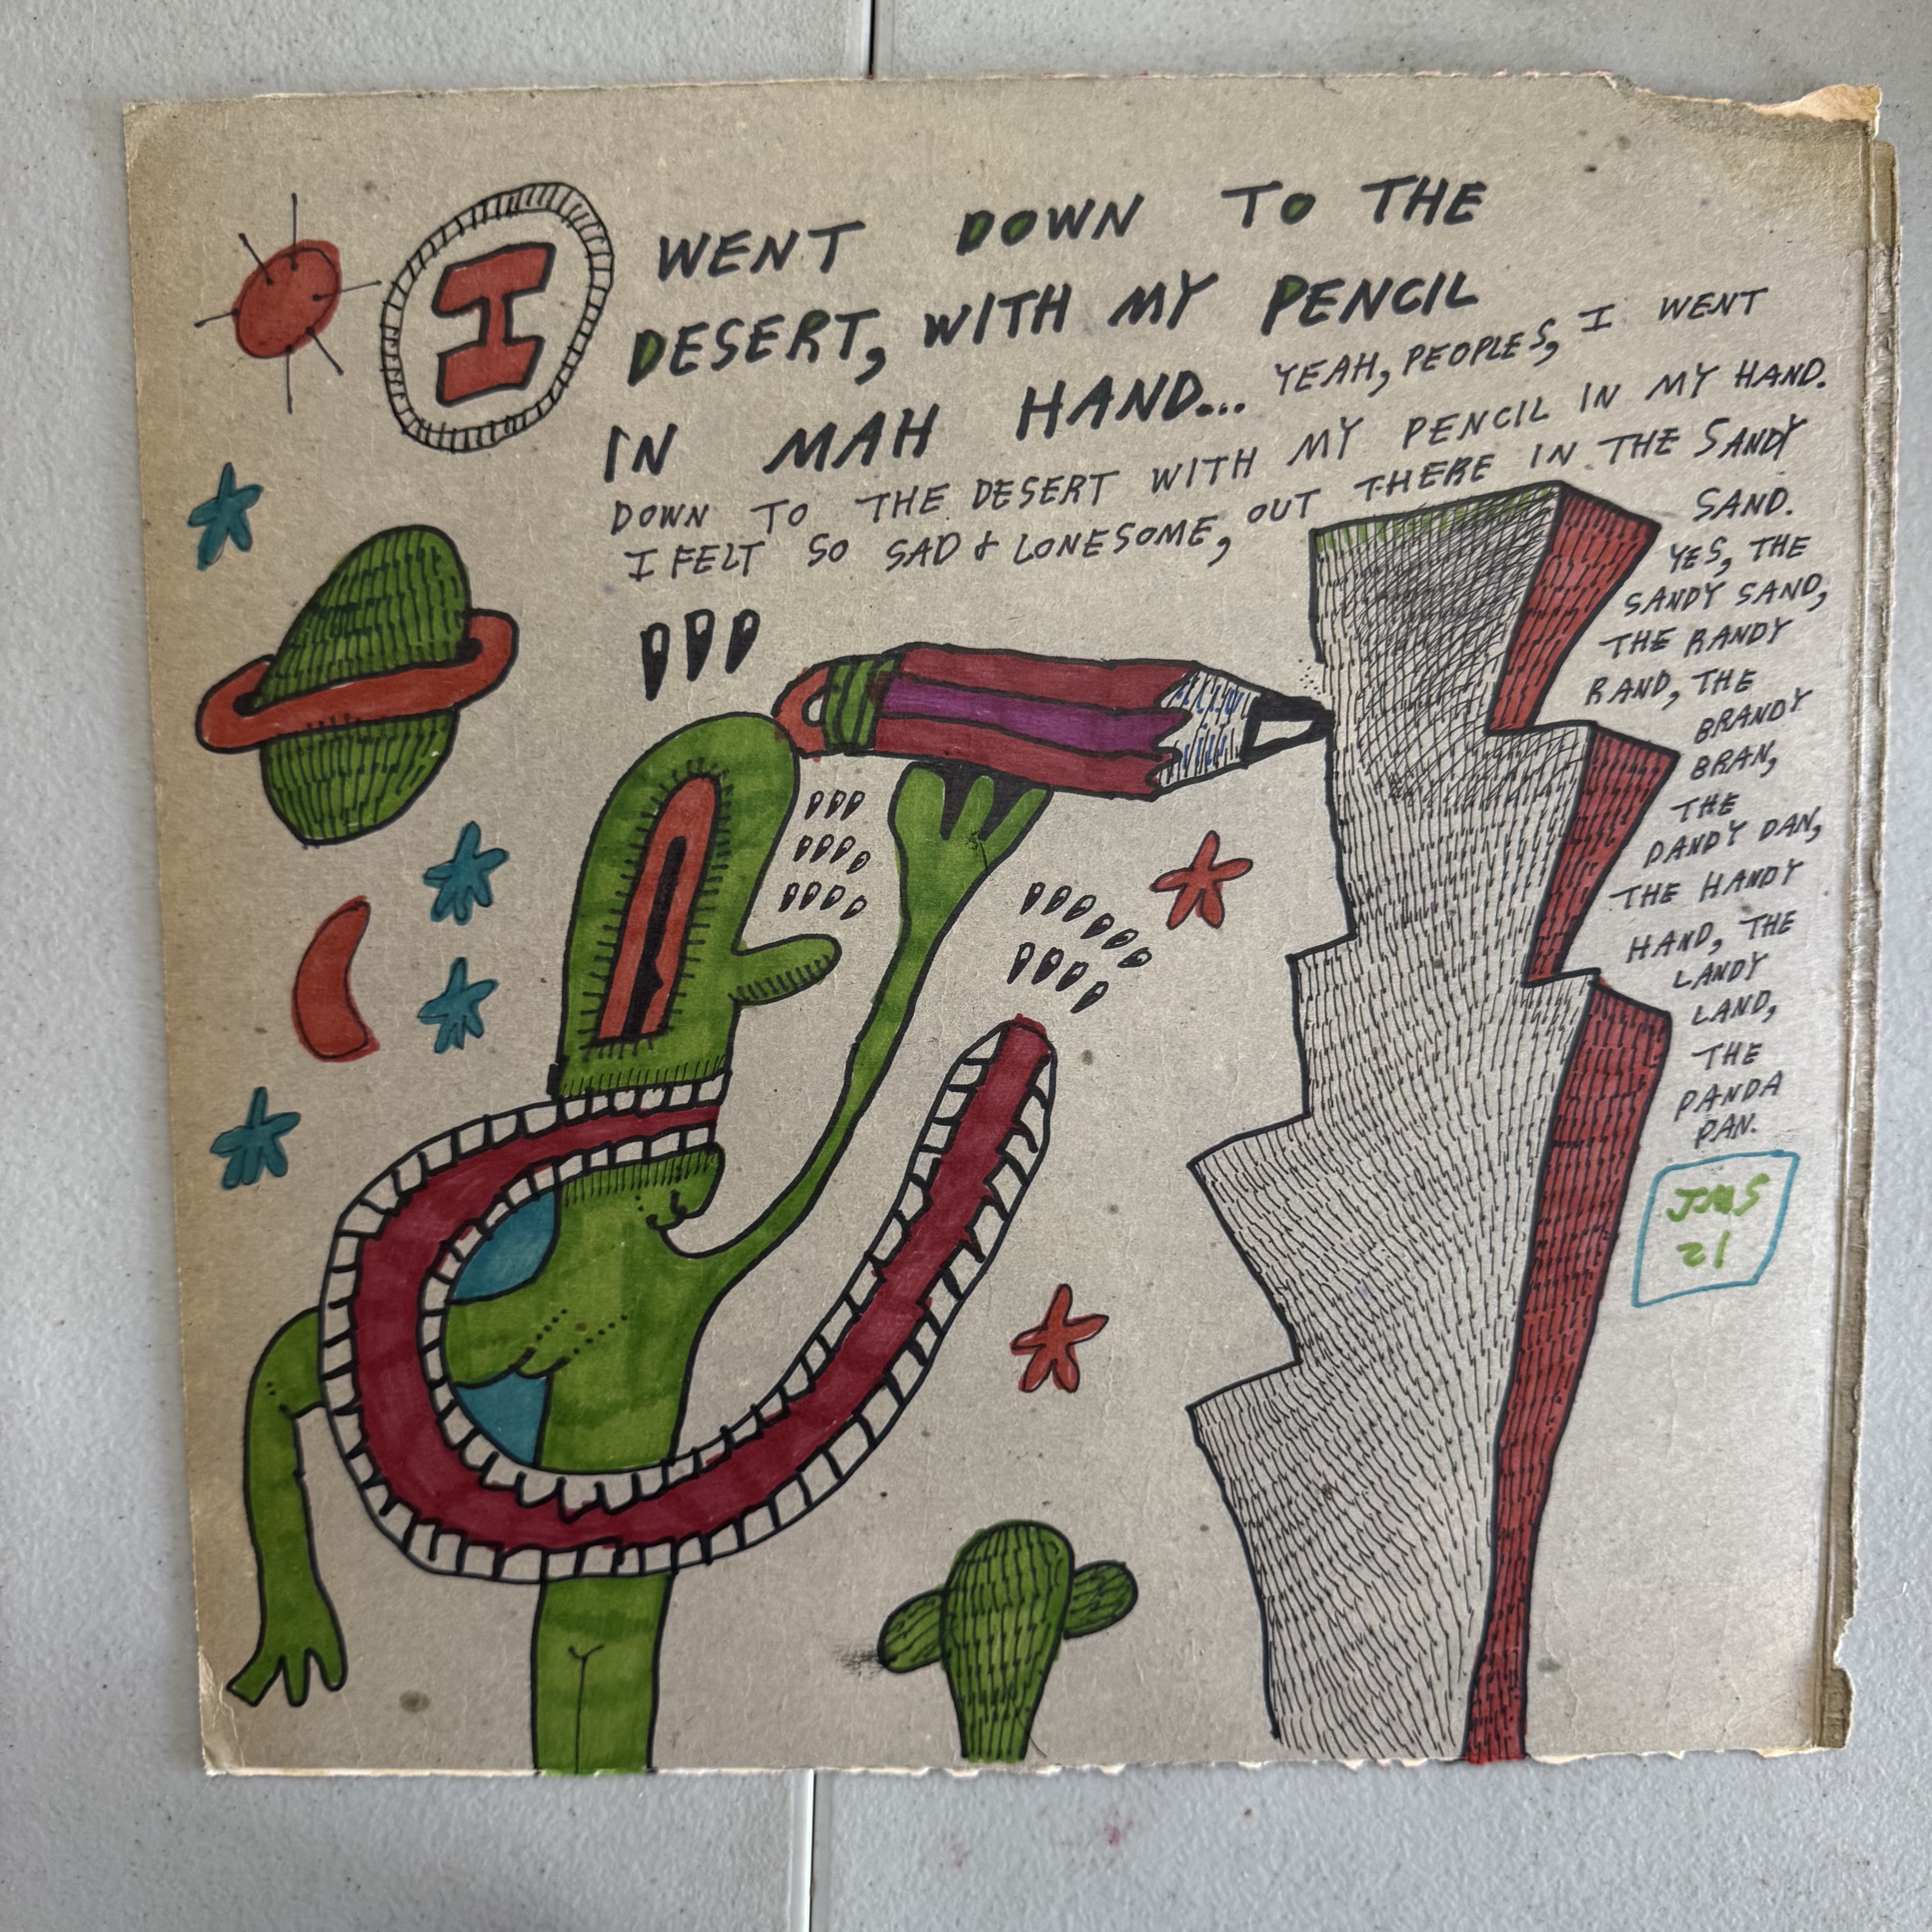 I WENT DOWN TO THE
DESERT, WITH MY PENCIL
IN MAH HAND... YEAH, PEOPLES, I WENT
DOWN TO THE DESERT WITH MY PENCIL IN MY HAND.
I FELT SO SAD & LONESOME, OUT THERE IN THE SANDY
SAND.
YES, THE
SANDY SAND,
THE RANDY
RAND, THE
BRANDY
BRAN,
THE
DANDY DAN,
THE HANDY
HAND, THE
LANDY
LAND,
THE
PANDA
PAN.
JMS
21